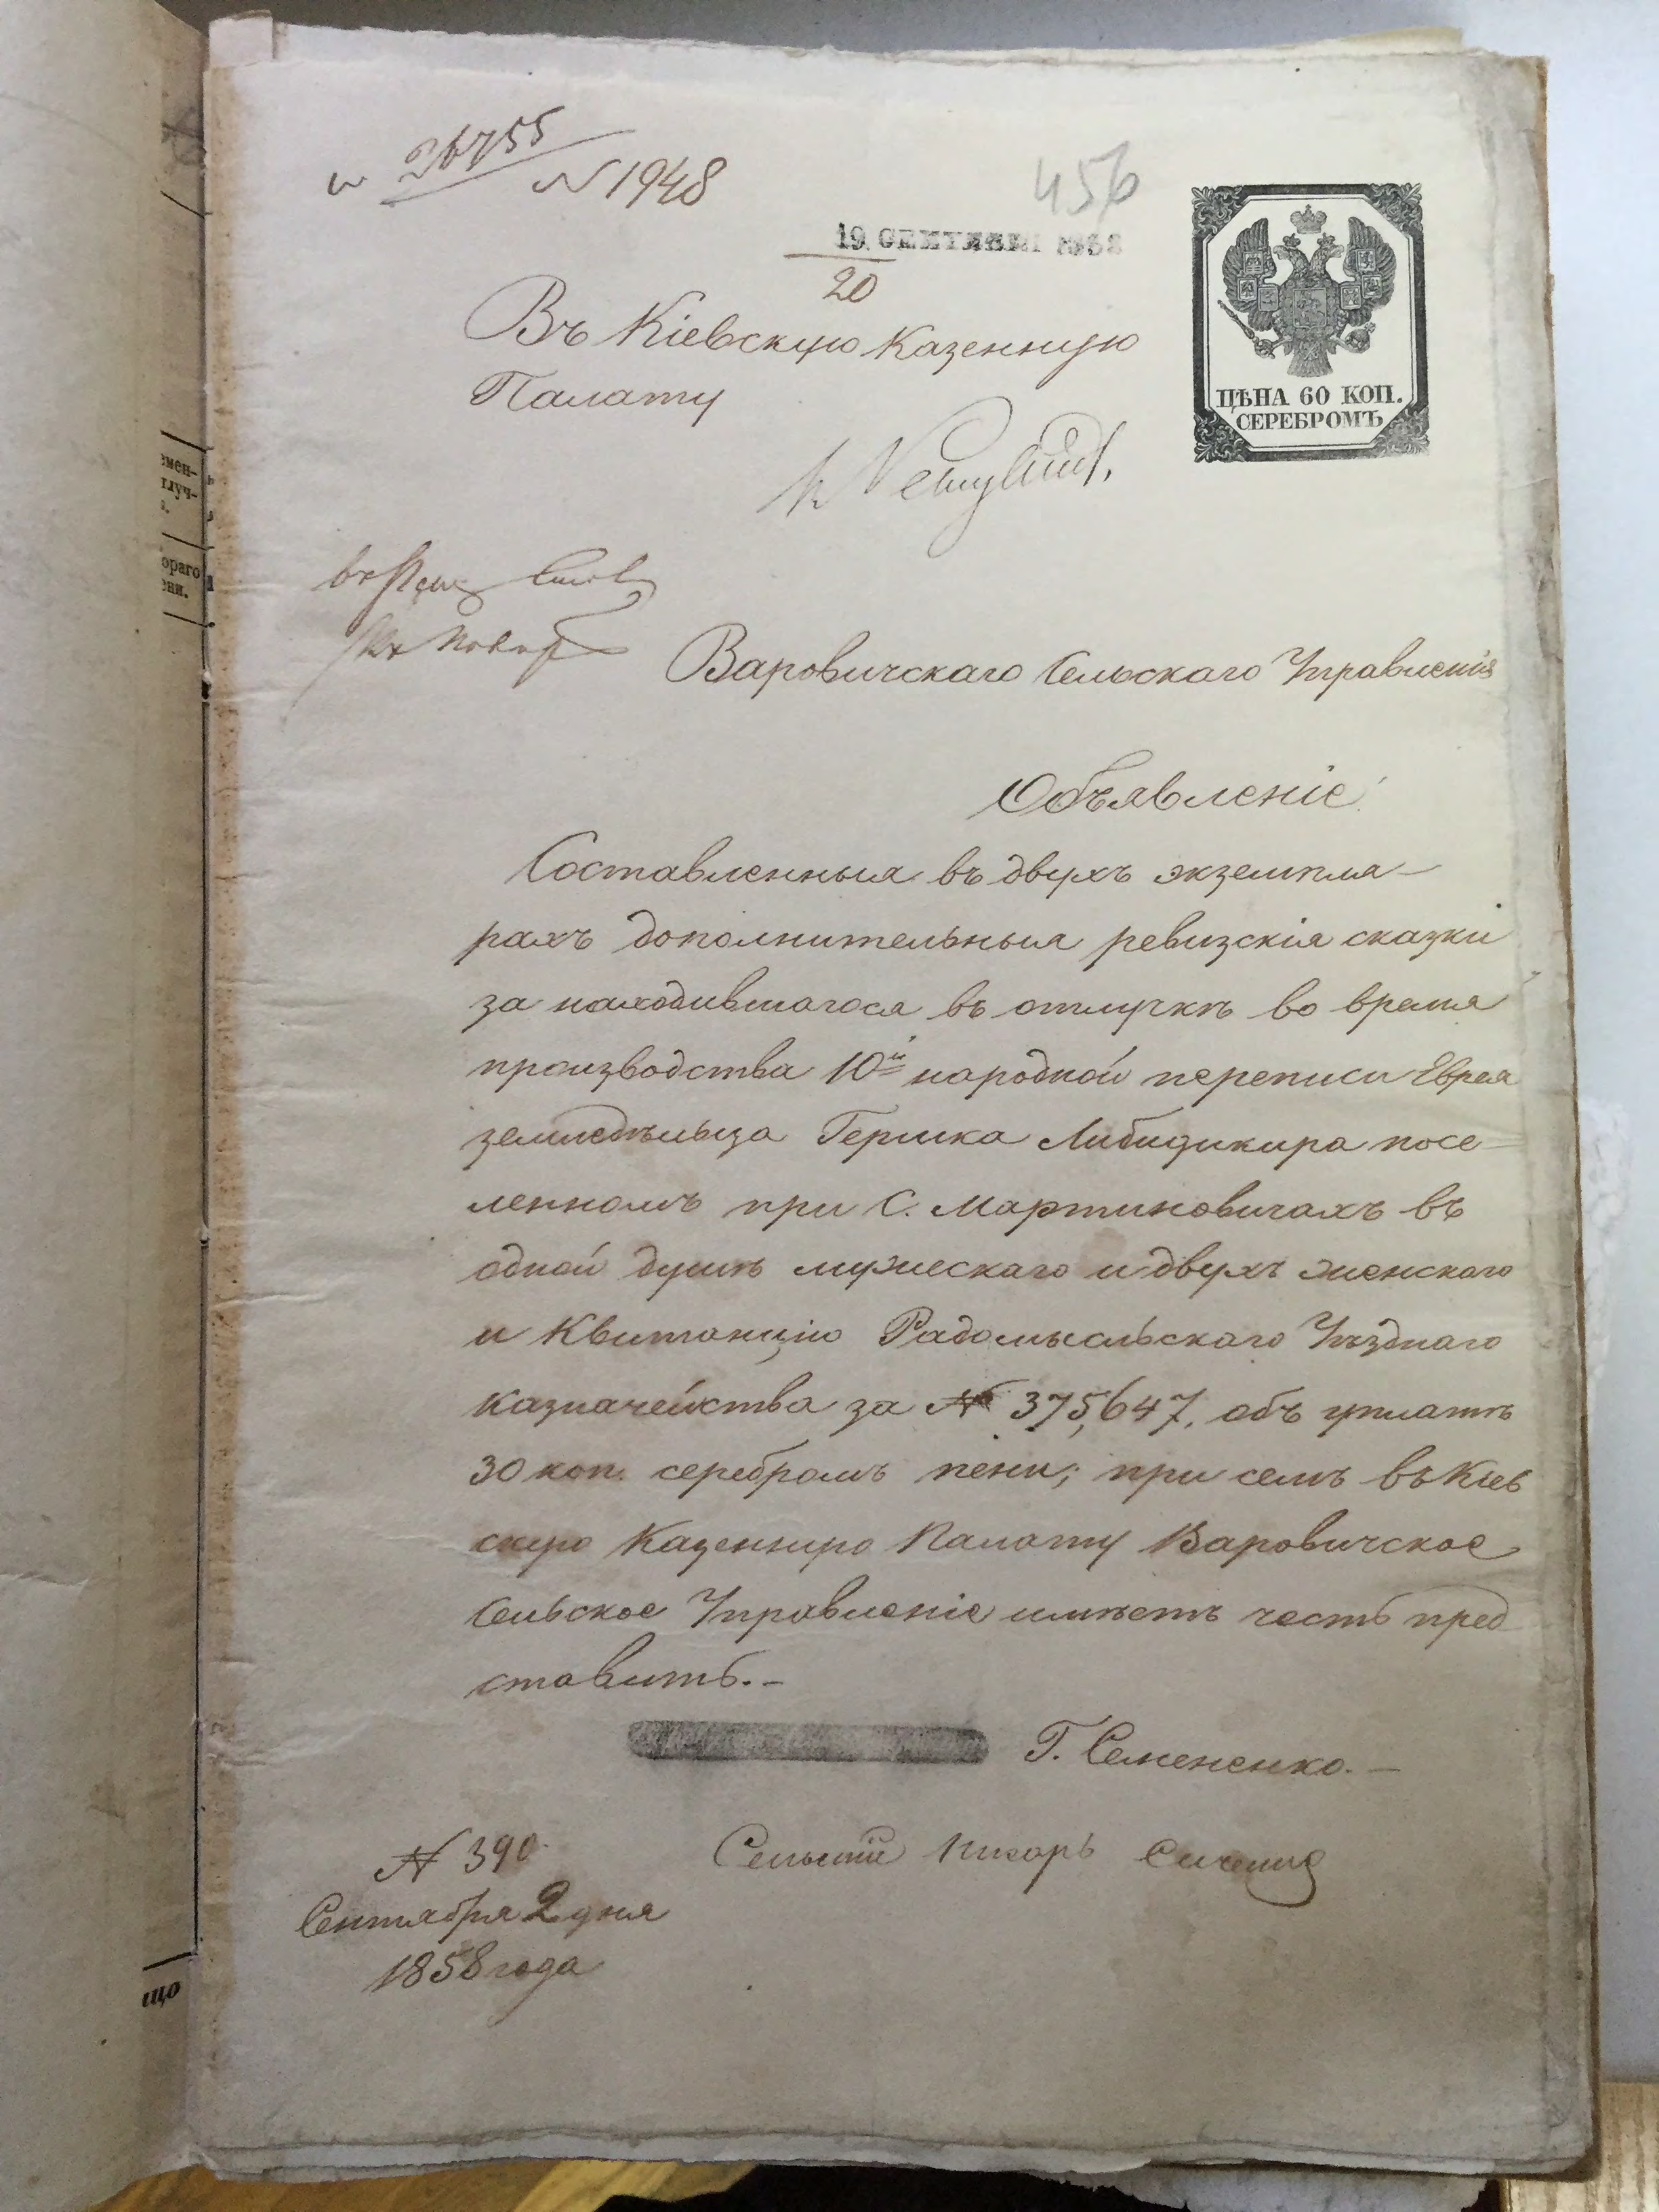 26755
N 1948
456
19 СЕНТЯБРЯ 1858
20
ЦѢНА 60 КОП.
СЕРЕБРОМЪ
Въ Кіевскую Казенную
Палату
Варовичскаго Сельскаго Управленія
Объявленіе
Составленныя въ двухъ экземпля-
рахъ дополнительныя ревизскія сказки
за находившагося въ отлучкѣ во время
производства 10й народной переписи Еврея
земледѣльца Гершка посе-
ленномъ при С. Мартиновичахъ въ
одной душѣ мужескаго и двухъ женскаго
и Квитанцію Радомысльскаго Уѣзднаго
Казначейства за № 375,647, объ уплатѣ
30 коп. серебромъ пени; при семъ въ Кіев
скую Казенную Палату Варовичское
Сельское Управленіе имѣетъ честь пред
ставить.-
Г. Семененко.-
Сельскій Писарь
№ 390.
Сентября 2 дня
1858 года
мен-
луч-
ораго
ени.
що